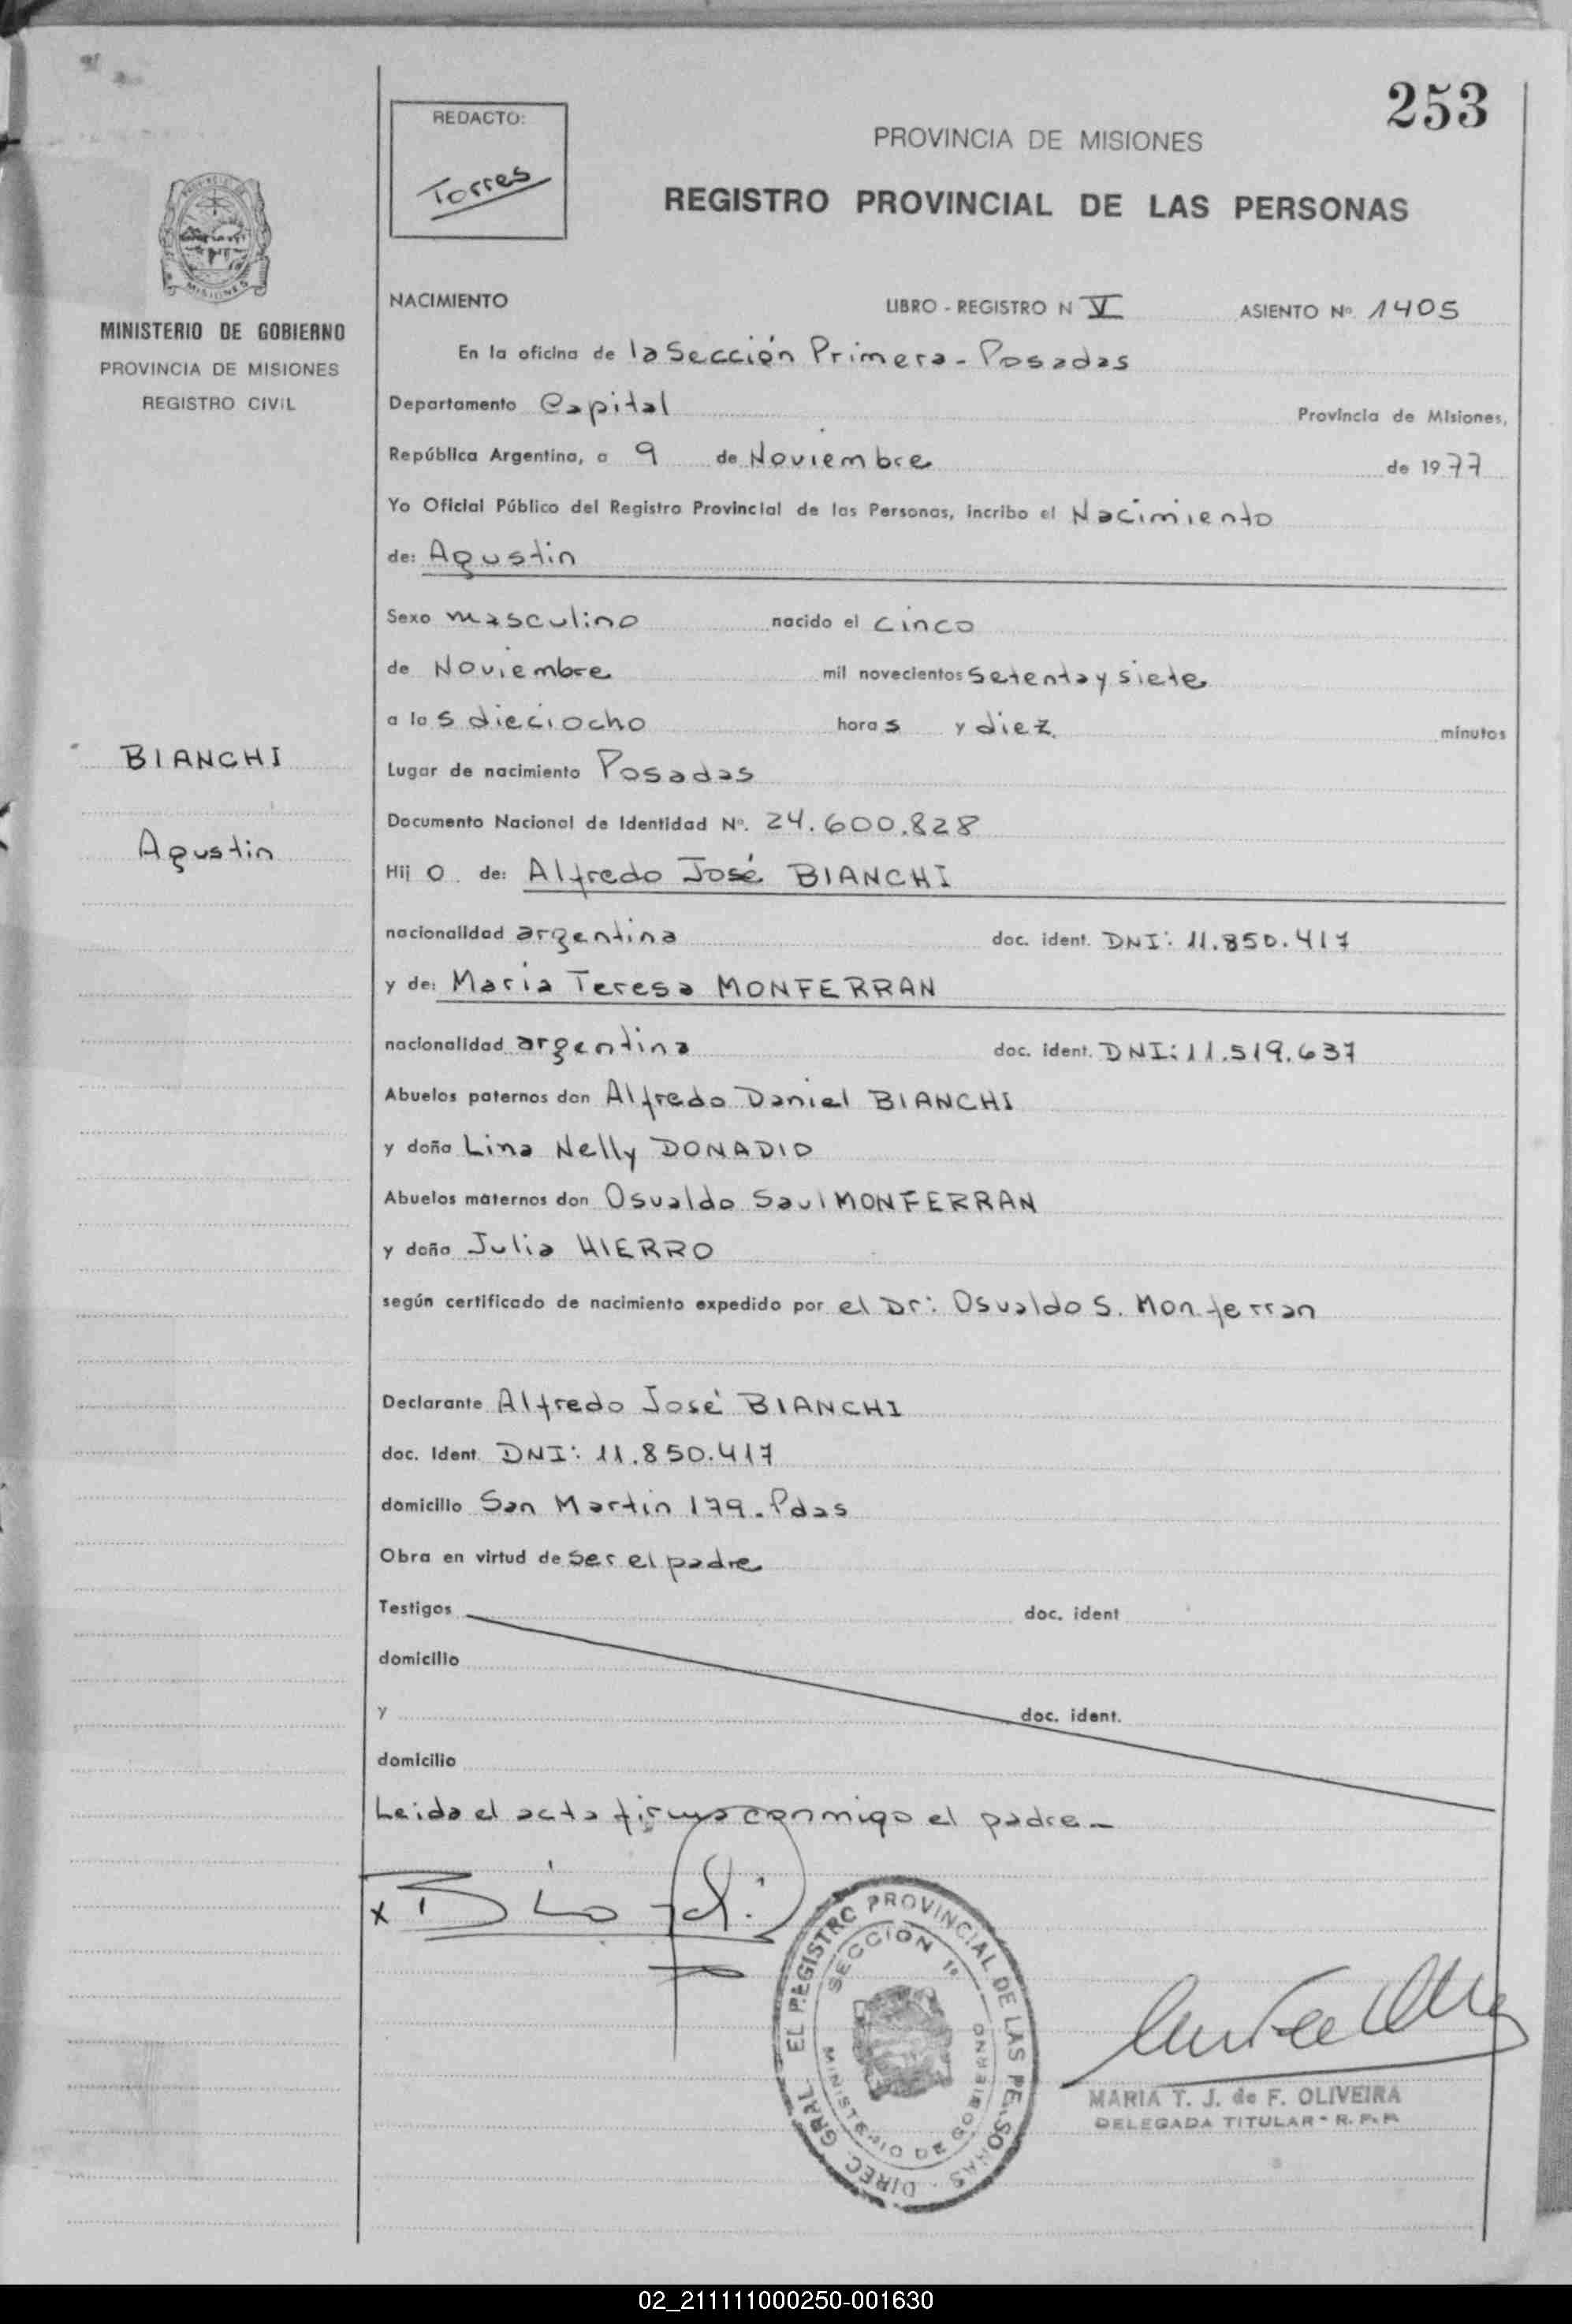 253
REDACTO:
Torres
PROVINCIA DE MISIONES
REGISTRO PROVINCIAL DE LAS PERSONAS
MISIONES
MINISTERIO DE GOBIERNO
PROVINCIA DE MISIONES
REGISTRO CIVIL
NACIMIENTO LIBRO - REGISTRO N V ASIENTO Nº 1405
En la oficina de la Sección Primera - Posadas
Departamento Capital Provincia de Misiones,
República Argentina, a 9 de Noviembre de 1977
Yo Oficial Público del Registro Provincial de las Personas, incribo el Nacimiento
de: Agustin
Sexo masculino nacido el cinco
de Noviembre mil novecientos setenta y siete
a las dieciocho horas y diez minutos
BIANCHI
Agustin
Lugar de nacimiento Posadas
Documento Nacional de Identidad Nº. 24.600.828
Hijo de: Alfredo José BIANCHI
nacionalidad argentina doc. ident. DNI: 11.850.417
y de: Maria Teresa MONFERRAN
nacionalidad argentina doc. ident. DNI: 11.519.637
Abuelos paternos don Alfredo Daniel BIANCHI
y doña Lina Nelly DONADIO
Abuelos maternos don Osvaldo Saul MONFERRAN
y doña Julia HIERRO
según certificado de nacimiento expedido por el Dr: Osvaldo S. Monferran
Declarante Alfredo José BIANCHI
doc. Ident. DNI: 11.850.417
domicilio San Martin 179. Pdas
Obra en virtud de ser el padre
Testigos doc. ident
domicilio
y doc. ident.
domicilio
Leida el acta firma conmigo el padre -
x Bianchi
DIREC. GRAL. EL REGISTRO PROVINCIAL DE LAS PERSONAS
SECCION 1ª
MINISTERIO DE GOBIERNO
MARIA T. J. de F. OLIVEIRA
DELEGADA TITULAR - R. P. P.
02_211111000250-001630